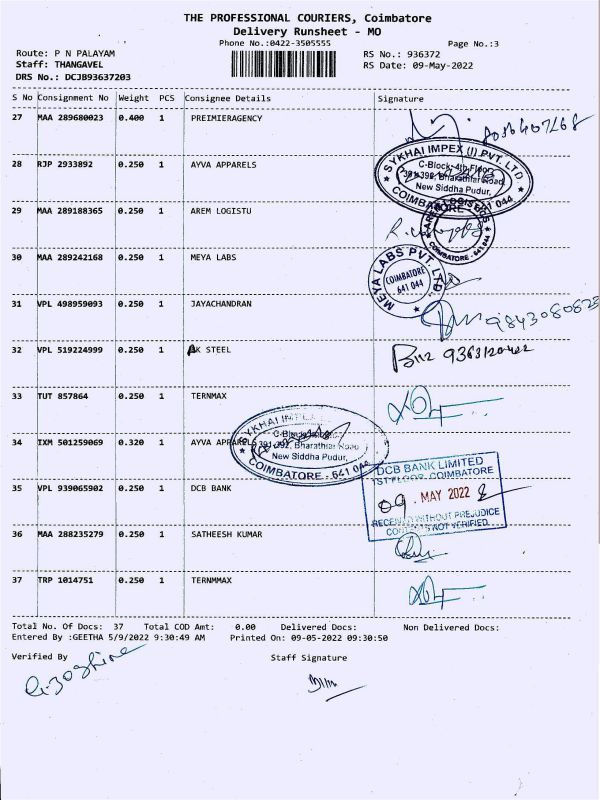 THE PROFESSIONAL COURIERS, Coimbatore
Delivery Runsheet - MO
Phone No.:0422-3505555
Page No.:3
Route: P N PALAYAM
RS No.: 936372
Staff: THANGAVEL
RS Date: 09-May-2022
DRS No.: DCJB93637203
S No Consignment No Weight PCS Consignee Details Signature
27 MAA 289680023 0.400 1 PREIMIERAGENCY
28 RJP 2933892 0.250 1 AYVA APPARELS
SYKHAI IMPEX (I) PVT. LTD.
C-Block, 4th Floor,
391-392, Bharathiar Road,
New Siddha Pudur,
COIMBATORE - 641 044
29 MAA 289188365 0.250 1 AREM LOGISTU
COIMBATORE - 641 044
30 MAA 289242168 0.250 1 MEYA LABS
MEYA LABS PVT. LTD.,
COIMBATORE
641 044
31 VPL 498959093 0.250 1 JAYACHANDRAN
9843080823
32 VPL 519224999 0.250 1 AK STEEL
33 TUT 857864 0.250 1 TERNMAX
34 IXM 501259069 0.320 1 AYVA APPARELS
SYKHAI IMPEX
C-Block,
391-392, Bharathiar Road,
New Siddha Pudur,
COIMBATORE - 641 044
35 VPL 939065902 0.250 1 DCB BANK
DCB BANK LIMITED
1ST FLOOR, COIMBATORE
09 MAY 2022
RECEIVED WITHOUT PREJUDICE
CONTENTS NOT VERIFIED
36 MAA 288235279 0.250 1 SATHEESH KUMAR
37 TRP 1014751 0.250 1 TERNMMAX
Total No. Of Docs: 37 Total COD Amt: 0.00 Delivered Docs: Non Delivered Docs:
Entered By :GEETHA 5/9/2022 9:30:49 AM Printed On: 09-05-2022 09:30:50
Verified By Staff Signature